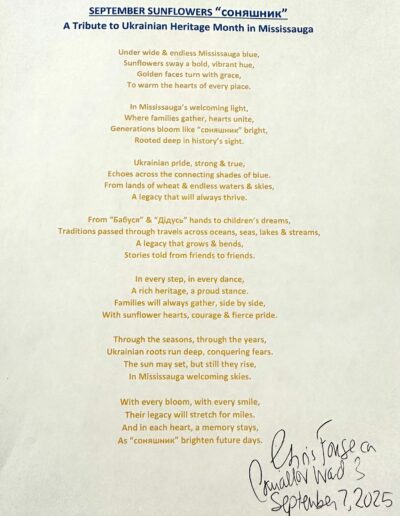 SEPTEMBER SUNFLOWERS “соняшник”
A Tribute to Ukrainian Heritage Month in Mississauga
Under wide & endless Mississauga blue,
Sunflowers sway a bold, vibrant hue,
Golden faces turn with grace,
To warm the hearts of every place.
In Mississauga’s welcoming light,
Where families gather, hearts unite,
Generations bloom like “соняшник” bright,
Rooted deep in history’s sight.
Ukrainian pride, strong & true,
Echoes across the connecting shades of blue.
From lands of wheat & endless waters & skies,
A legacy that will always thrive.
From “Бабуся” & “Дідусь” hands to children’s dreams,
Traditions passed through travels across oceans, seas, lakes & streams,
A legacy that grows & bends,
Stories told from friends to friends.
In every step, in every dance,
A rich heritage, a proud stance.
Families will always gather, side by side,
With sunflower hearts, courage & fierce pride.
Through the seasons, through the years,
Ukrainian roots run deep, conquering fears.
The sun may set, but still they rise,
In Mississauga welcoming skies.
With every bloom, with every smile,
Their legacy will stretch for miles.
And in each heart, a memory stays,
As “соняшник” brighten future days.
Chris Fonseca
Councillor Ward 3
September 7, 2025